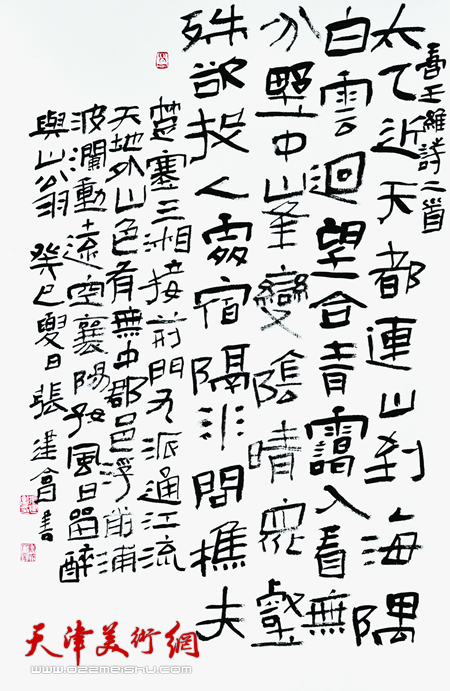 書王維詩二首
太乙近天都連山到海隅
白雲迴望合青靄入看無
分野中峯變陰晴眾壑
殊欲投人處宿隔非問樵夫
楚塞三湘接荊門九派通江流
天地外山色有無中郡邑浮前浦
波瀾動遠空襄陽好風日留醉
與山翁 癸巳夏日張建會書
天津美術網
www.022meishu.com